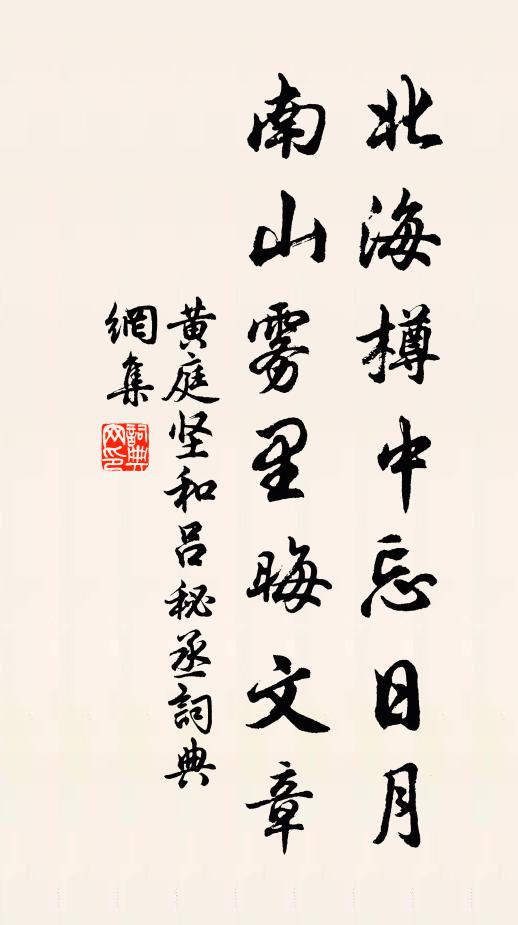 北海樽中忘日月
南山雾里晦文章
黄庭坚和吕秘丞詞典
網集
詞典
网印